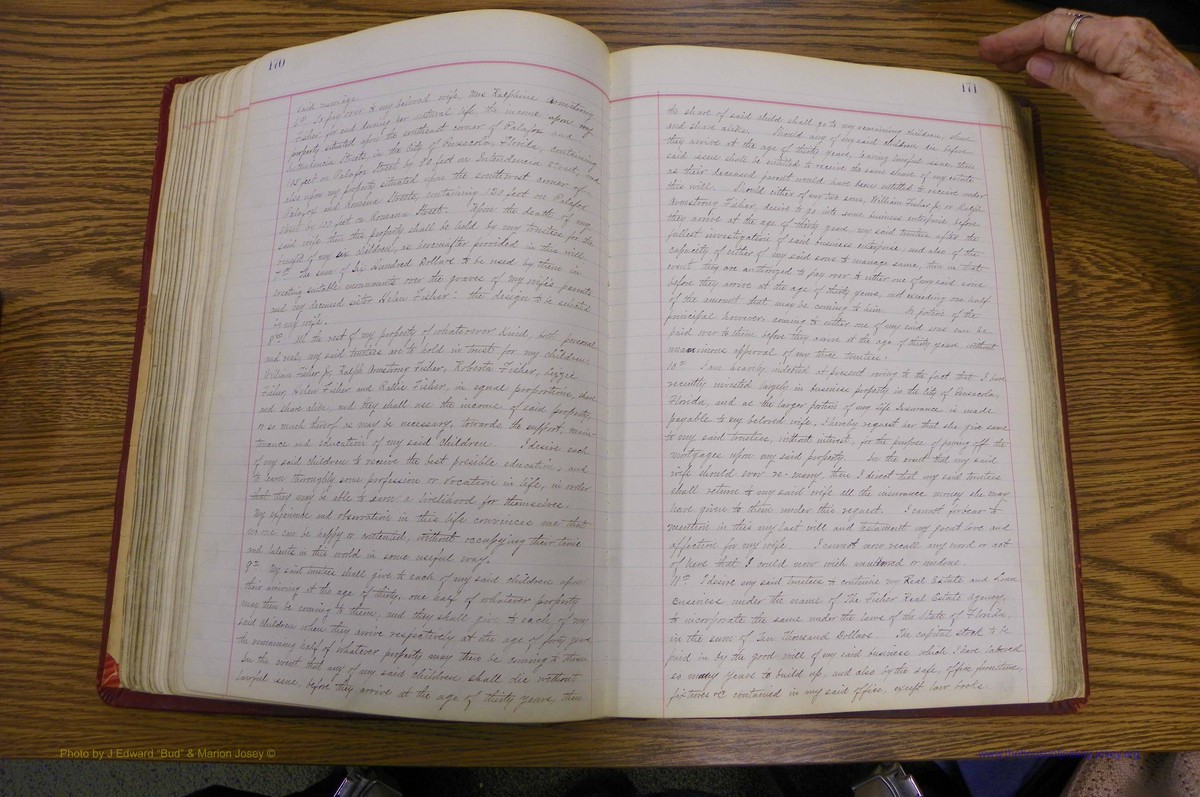 170
said marriage.
6th To pay over to my beloved wife, Mrs Kalphine Armstrong
Fisher, for and during her natural life, the income upon my
property situated upon the southeast corner of Palafox and
Intendencia Streets, in the City of Pensacola, Florida, containing
115 feet on Palafox Street by 90 feet on Intendencia Street, and
also upon my property situated upon the southwest corner of
Palafox and Romana Streets, containing 120 feet on Palafox
Street by 122 feet on Romana Street. Upon the death of my
said wife then this property shall be held by my trustees for the
benefit of my six children, as hereinafter provided in this will.
7th The sum of Six Hundred Dollars to be used by them in
erecting suitable monuments over the graves of my wife's parents
and my deceased sister Helen Fisher: the design to be selected
by my wife.
8th All the rest of my property of whatsoever kind, both personal
and real, my said trustees are to hold in trust for my children,
William Fisher Jr, Ralph Armstrong Fisher, Roberta Fisher, Lizzie
Fisher, Helen Fisher and Kallie Fisher, in equal proportions, share
and share alike, and they shall use the income of said property,
or so much thereof as may be necessary, towards the support, main-
tenance and education of my said children. I desire each
of my said children to receive the best possible education, and
to learn thoroughly some profession or vocation in life, in order
that they may be able to earn a livelihood for themselves.
My experience and observation in this life convinces me that
no one can be happy or contented, without occupying their time
and talents in this world in some useful way.
9th My said trustees shall give to each of my said children upon
their arriving at the age of thirty, one half of whatever property
may then be coming to them, and they shall give to each of my
said children when they arrive respectively at the age of forty years
the remaining half of whatever property may then be coming to them.
In the event that any of my said children shall die without
lawful issue, before they arrive at the age of thirty years, then
171
the share of said child shall go to my remaining children, share
and share alike. Should any of my said children die before
they arrive at the age of thirty years, leaving lawful issue, then
said issue shall be entitled to receive the same share of my estate
as their deceased parent would have been entitled to receive under
this will. Should either of my two sons, William Fisher Jr, or Ralph
Armstrong Fisher, desire to go into some business enterprise before
they arrive at the age of thirty years, my said trustees after the
fullest investigation of said business enterprise, and also of the
capacity of either of my said sons to manage same, then in that
event they are authorized to pay over to either one of my said sons
before they arrive at the age of thirty years, not exceeding one half
of the amount that may be coming to him. No portion of the
principal however, coming to either one of my said sons can be
paid over to them before they arrive at the age of thirty years, without
unanimous approval of my three trustees.
10th I am heavily indebted at present, owing to the fact that I have
recently invested largely in business property in the city of Pensacola,
Florida, and as the larger portion of my life Insurance is made
payable to my beloved wife, I hereby request her that she give same
to my said trustees, without interest, for the purpose of paying off the
mortgages upon my said property. In the event that my said
wife should ever re-marry, then I direct that my said trustees
shall return to my said wife all the insurance money she may
have given to them under this request. I cannot forbear to
mention in this my last will and testament my great love and
affection for my wife. I cannot now recall any word or act
of hers that I could now wish unuttered or undone.
11th I desire my said trustees to continue my Real Estate and Loan
Business under the name of The Fisher Real Estate Agency,
to incorporate the same under the laws of the State of Florida,
in the sum of Ten Thousand Dollars. The capital stock to be
paid in by the good will of my said business which I have labored
so many years to build up, and also by the safe, office furniture,
fixtures &c contained in my said office, except law books.
Photo by J Edward "Bud" & Marion Josey ©